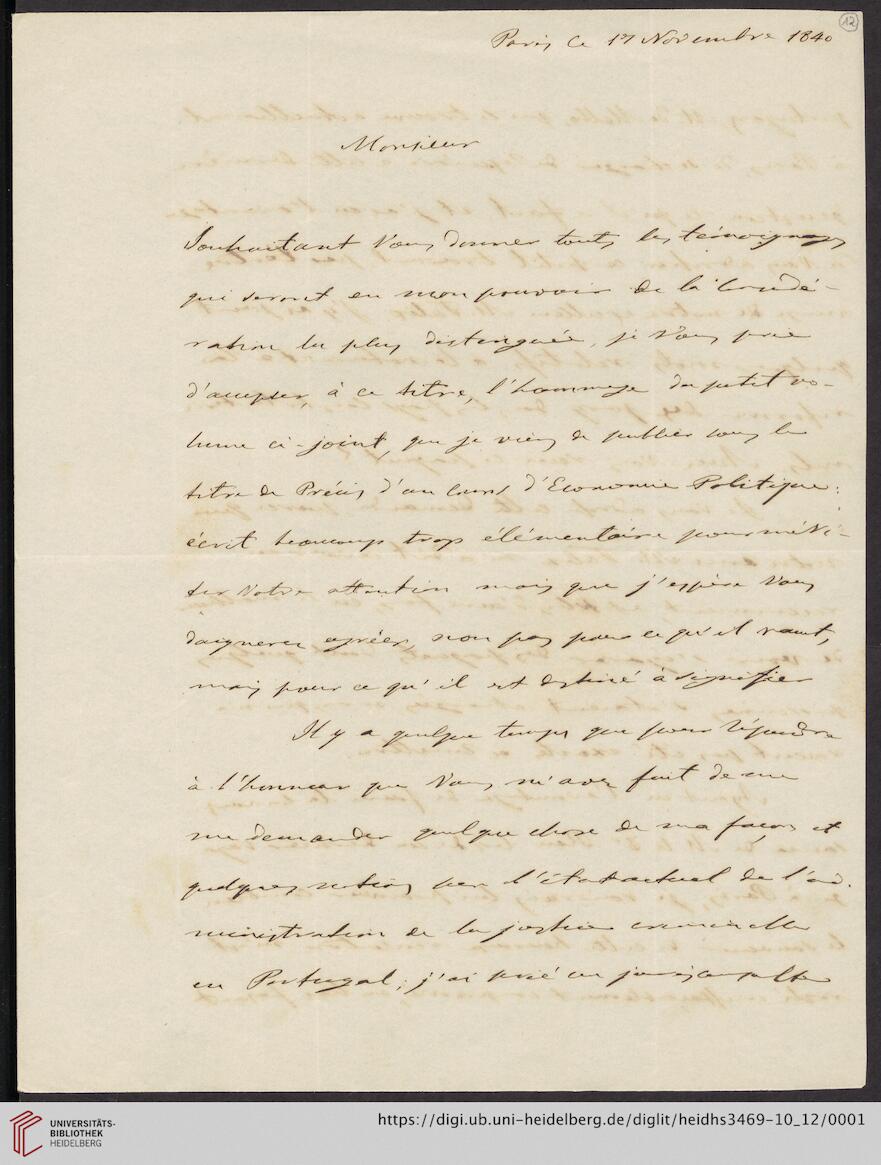 12
Paris ce 17 Novembre 1840
Monsieur
Souhaitant Vous donner touts les témoignages
qui seront en mon pouvoir de la Considé-
ration la plus distinguée, je Vous prie
d'accepter, à ce titre, l'hommage du petit vo-
lume ci-joint, que je viens de publier sous le
titre de Précis d'un Cours d'Economie Politique:
écrit beaucoup trop élémentaire pour méri-
ter Votre attention mais que j'espère Vous
daignerez agréer, non pas pour ce qu'il vaut,
mais pour ce qu'il est destiné à signifier
Il y a quelque temps que pour répondre
à l'honneur que Vous m'avez fait de me
me demander quelque chose de ma façon et
quelques notions sur l'état actuel de l'ad-
ministration de la justice criminelle
en Portugal; j'ai prié un jurisconsulte
UNIVERSITÄTS-
BIBLIOTHEK
HEIDELBERG
https://digi.ub.uni-heidelberg.de/diglit/heidhs3469-10_12/0001